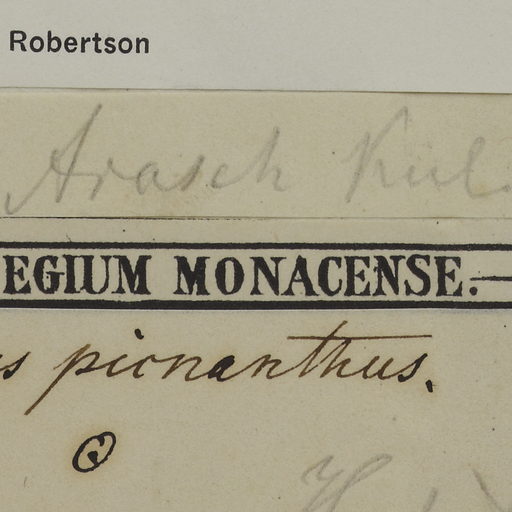 Robertson
Arasch Kul
EGIUM MONACENSE.
s picnanthus.